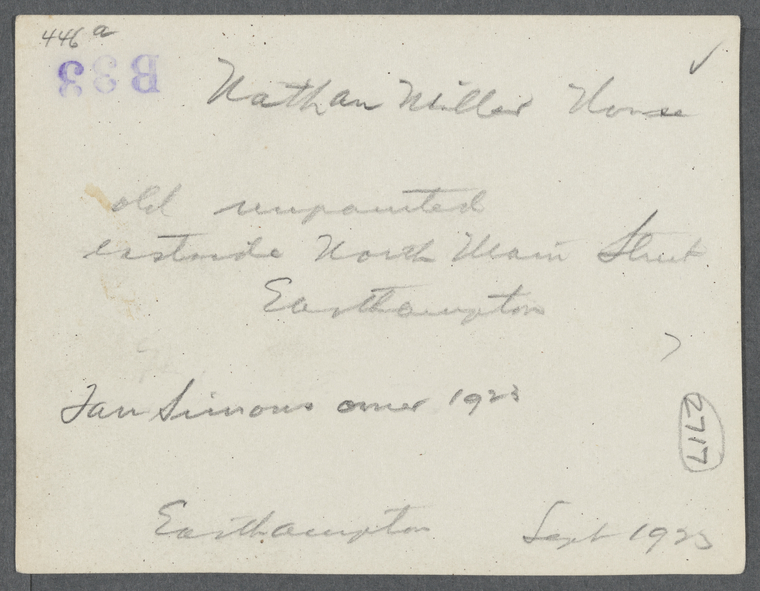 446 a
B33
Nathan Miller House
old unpainted
eastside North Main Street
Easthampton
Simons owner 1923
2717
Easthampton Sept 1923